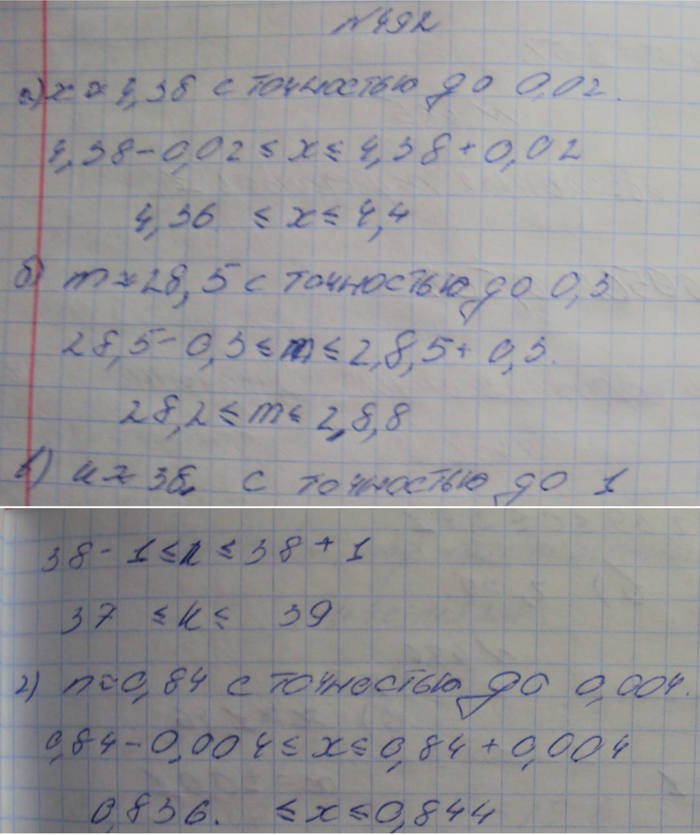 №492
а) x ≈ 4,38 с точностью до 0,02.
4,38 - 0,02 ≤ x ≤ 4,38 + 0,02
4,36 ≤ x ≤ 4,4
б) m ≈ 28,5 с точностью до 0,3
28,5 - 0,3 ≤ m ≤ 2,8,5 + 0,3.
28,2 ≤ m ≤ 2,8,8
в) k ≈ 38. с точностью до 1
38 - 1 ≤ k ≤ 38 + 1
37 ≤ k ≤ 39
г) n ≈ 0,84 с точностью до 0,004.
0,84 - 0,004 ≤ x ≤ 0,84 + 0,004
0,836. ≤ x ≤ 0,844